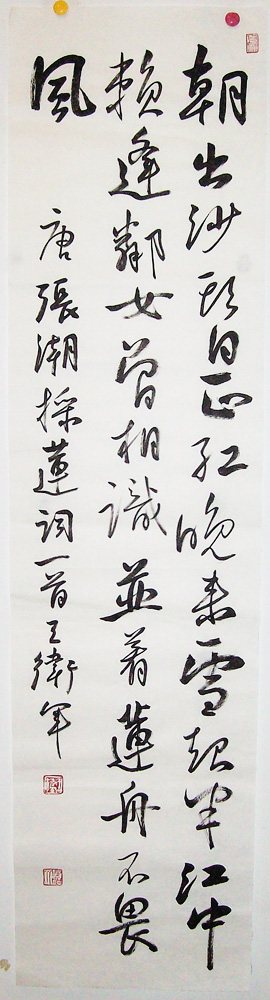 朝出沙頭日正紅晚來雲起半江中
賴逢鄰女曾相識並着蓮舟不畏
風
唐張潮採蓮詞一首王衛軍